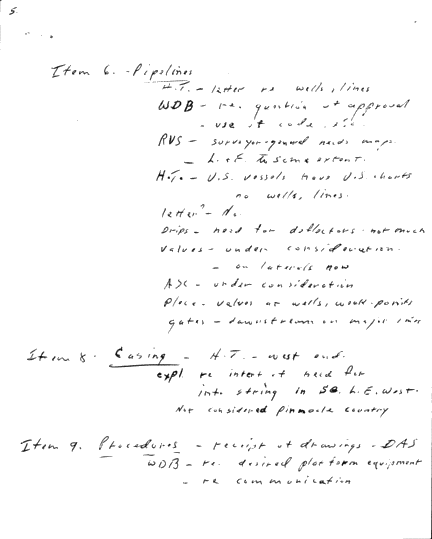 5.
Item 6. - Pipelines
H.T. - letter re wells, lines
WDB - re. question of approval
- use of code, etc.
RVS - surveyor-general needs maps.
- L. & F. to some extent.
H.T. - U.S. vessels have U.S. charts
no wells, lines.
letter? - No.
Drips - need for deflectors - not much
Valves - under consideration.
- on laterals now
A>C - under consideration
Place - valves at wells, weak-points
gates - downstream on major lines
Item 8. Casing - H.T. - west end.
expl. re intent of need for
into string in L.E. West.
Not considered Pinnacle country
Item 9. Procedures - receipt of drawings - DAS
WDB - re. desired platform equipment
- re communication